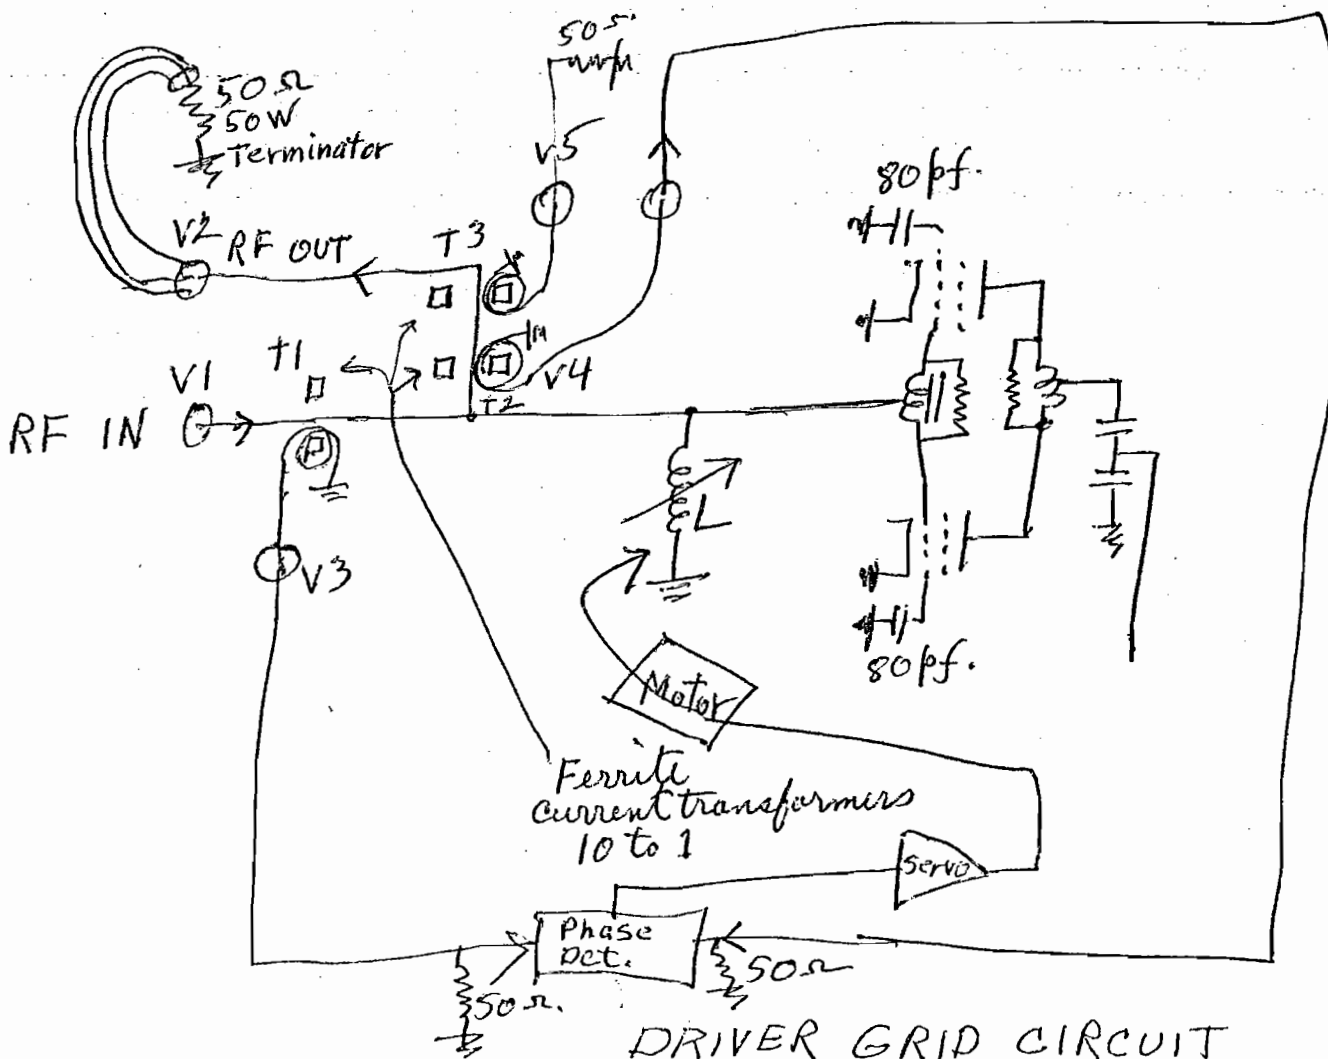 50Ω
50Ω
50W
Terminator
V5
80pf.
V2 RF OUT
T3
T1
V1
V4
T2
RF IN
L
V3
80pf.
Motor
Ferrite
current transformers
10 to 1
Servo
Phase
Det.
50Ω
50Ω.
DRIVER GRID CIRCUIT